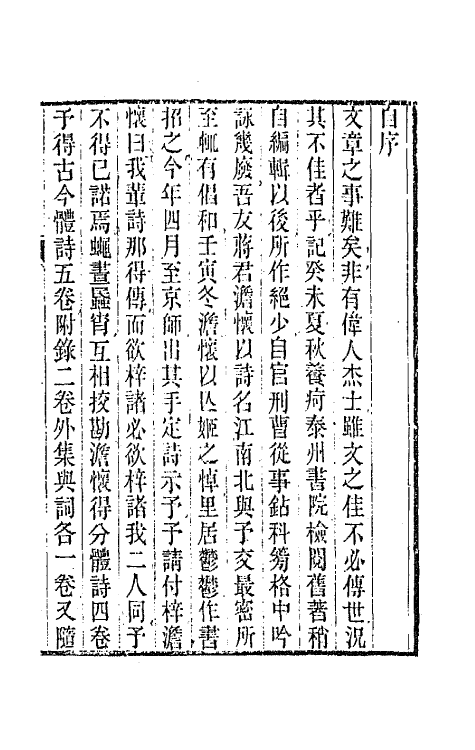 自序
文章之事難矣非有偉人杰士雖文之佳不必傳世況
其不佳者乎記癸未夏秋養疴泰州書院檢閱舊著稍
自編輯以後所作絕少自官刑曹從事鉆科篛格中吟
詠幾廢吾友蔣君澹懷以詩名江南北與予交最密所
至輒有倡和壬寅冬澹懷以亾姬之悼里居鬱鬱作書
招之今年四月至京師出其手定詩示予予請付梓澹
懷曰我輩詩那得傳而欲梓諸必欲梓諸我二人同予
不得已諾焉蠅晝蟁宵互相挍勘澹懷得分體詩四卷
予得古今體詩五卷附錄二卷外集與詞各一卷又隨